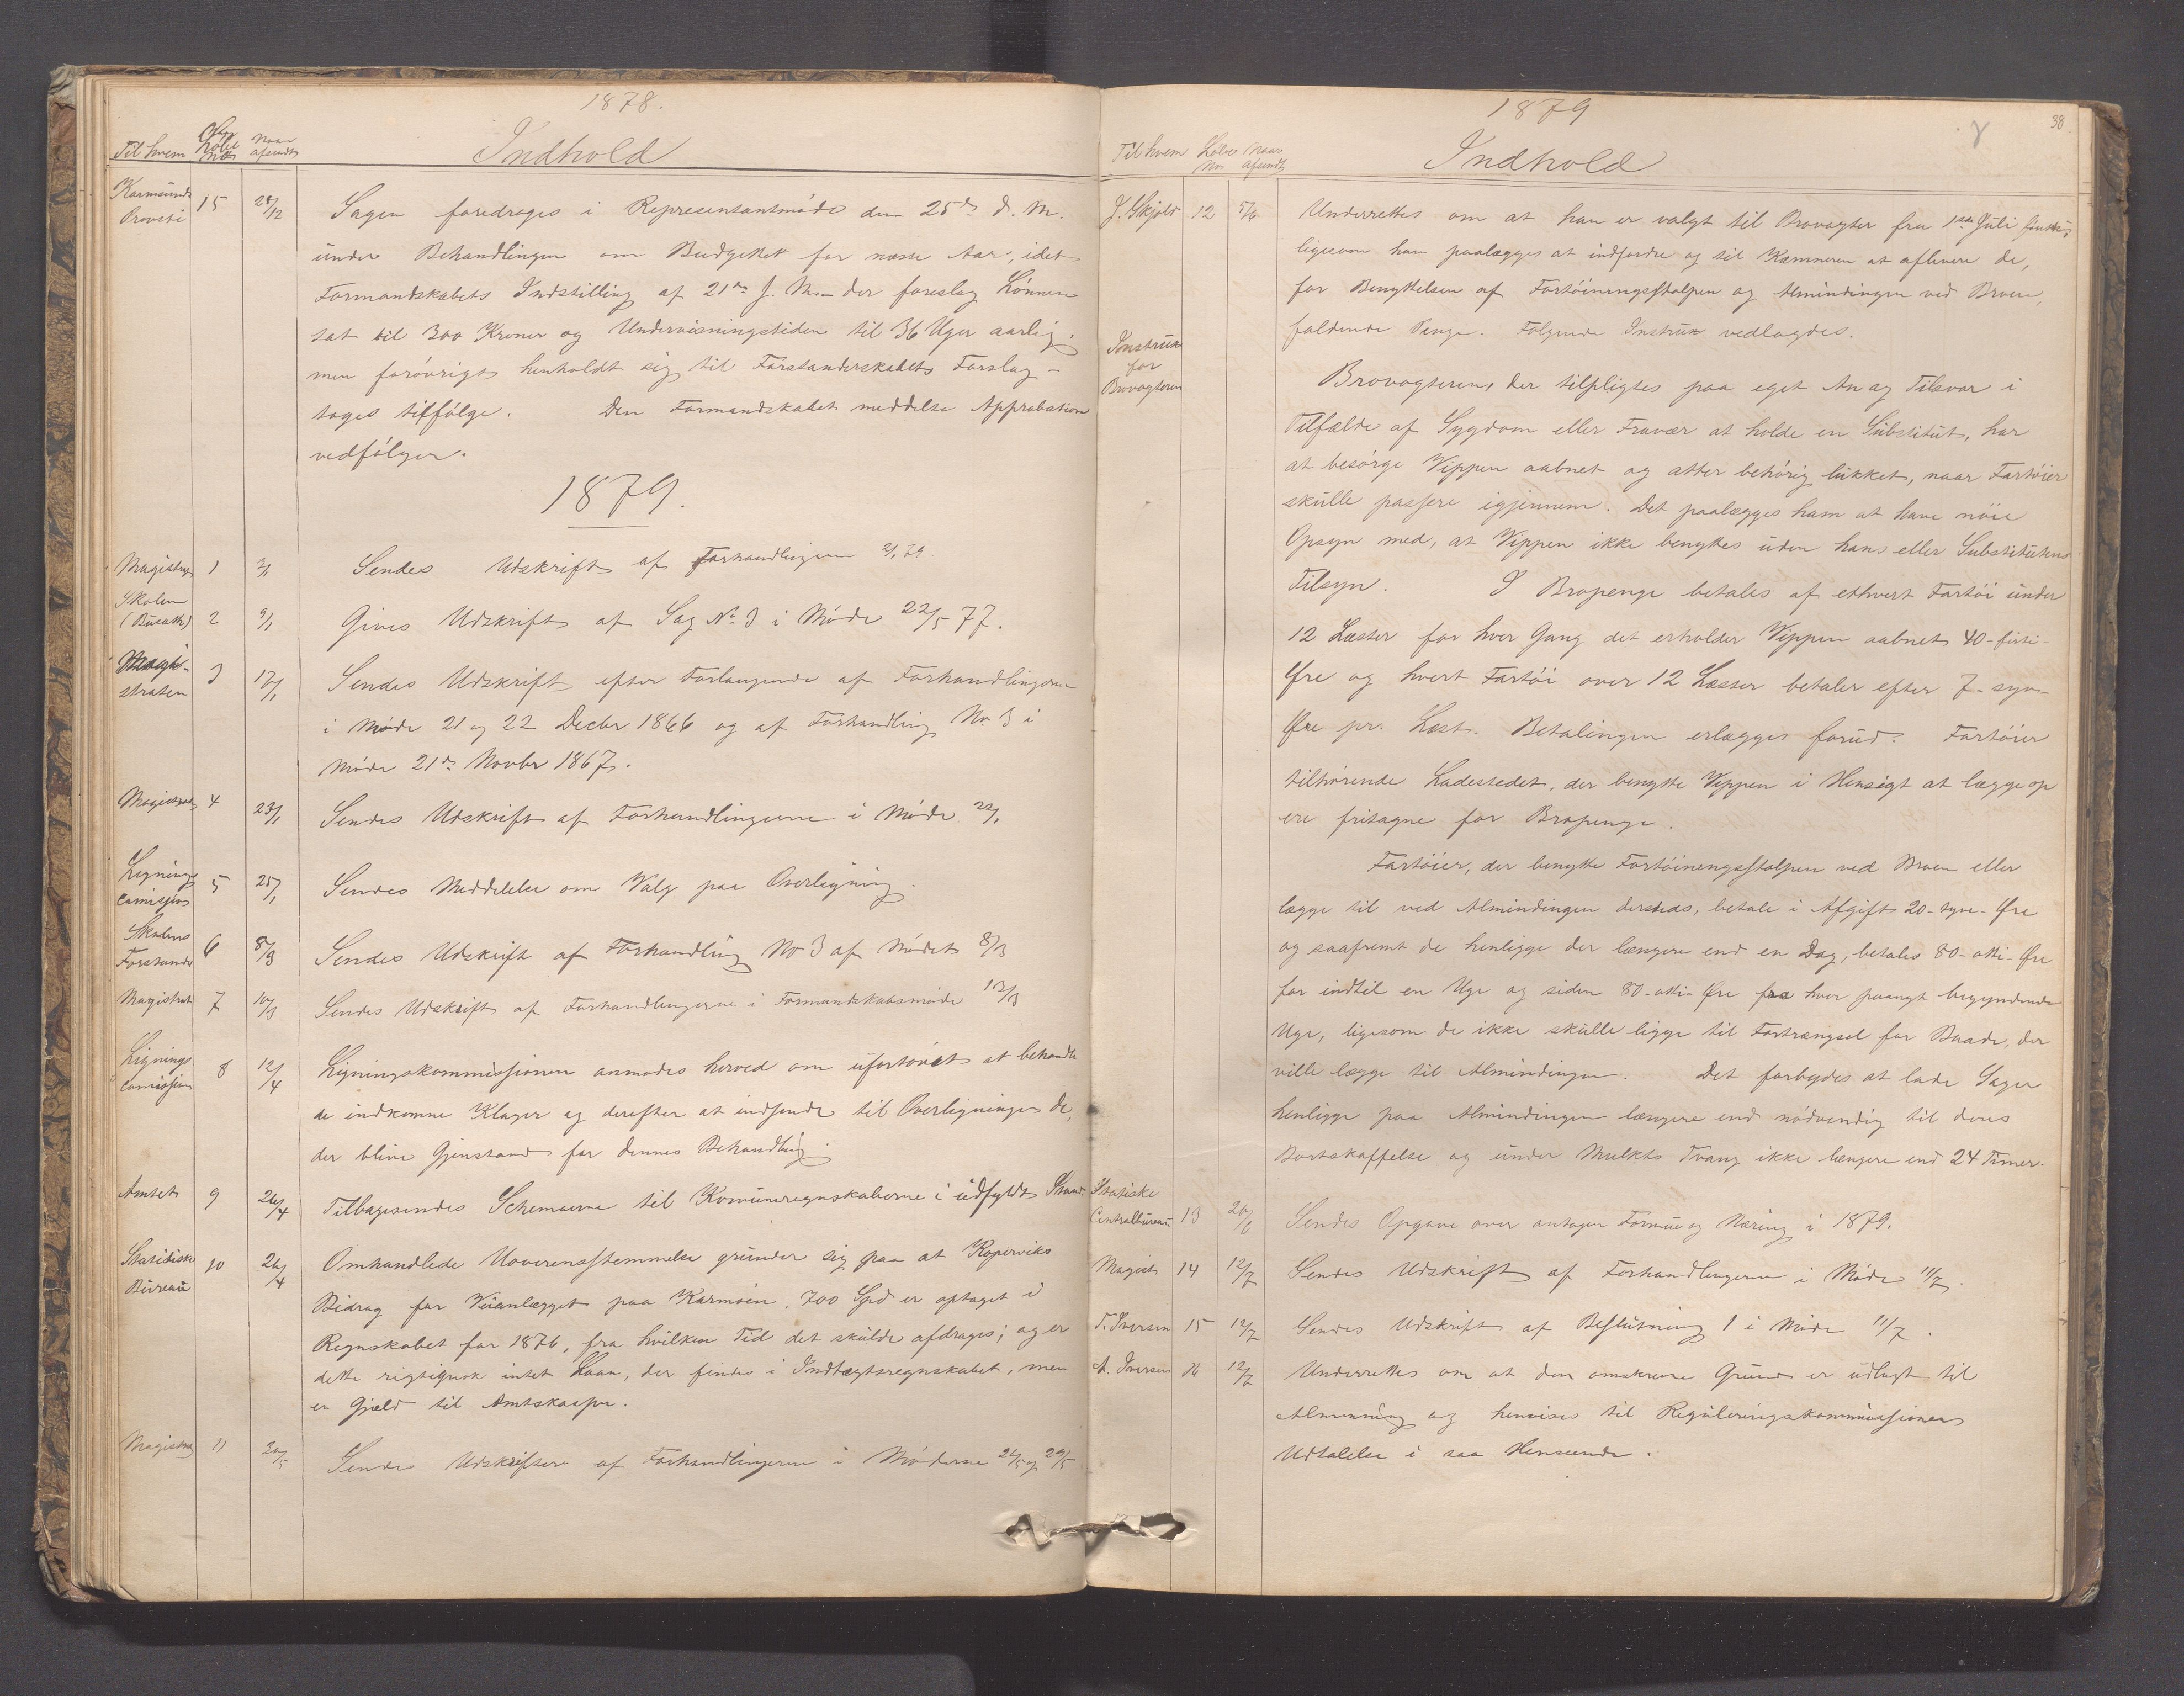 1878.
Til hvem Löbe No Naar afsendt Indhold
Karmsunds Provsti 15 28/12 Sagen foredroges i Representantmöde den 25de d. M.
under Behandlingen om Budgettet for næste Aar, idet
Formandskabets Indstilling af 21de f. M. der foreslog Lönnen
sat til 300 Kroner og Undervisningstiden til 36 Uger aarlig,
men forövrigt henholdt sig til Forstanderskabets Forslag -
toges tilfölge. Den Formandskabet meddelte Approbation
vedfölger.
1879.
Magistrat 1 3/1 Sendes Udskrift af Forhandlingerne 2/1 79.
Skolen
2 9/1 Gives Udskrift af Sag No 3 i Möde 22/5 77.
Magi-
straten 3 17/1 Sendes Udskrift efter Forlangende af Forhandlingerne
i Möde 21 og 22 Decbr 1866 og af Forhandling No. 3 i
Möde 21de Novbr 1867.
Magistrat 4 23/1 Sendes Udskrift af Forhandlingerne i Möde 22/1
Lignings
Comissjon 5 25/1 Sendes Meddelelse om Valg paa Overligning.
Skolens
Forstander 6 8/3 Sendes Udskrift af Forhandling No 3 af Mödet 8/3
Magistrat 7 10/3 Sendes Udskrift af Forhandlingerne i Formandskabsmöde 13/3
Lignings
Comissjon 8 12/4 Ligningskommissjonen anmodes herved om ufortövet at behandle
de indkomne Klager og derefter at indsende til Overligningen de,
der blive Gjenstand for dennes Behandling.
Amtet 9 26/4 Tilbagesendes Schemaerne til Komuneregnskaberne i udfyldt Stand.
Statistiske
Bureau 10 26/4 Omhandlede Uoverensstemmelse grunder sig paa at Kopervik's
Bidrag for Veianlægget paa Karmöen, 700 Spd er optaget i
Regnskabet for 1876, fra hvilken Tid det skulde afdrages; og er
dette rigtignok intet Laan, der findes i Indtægtsregnskabet, men
en Gjæld til Amtskassen.
Magistrat 11 30/5 Sendes Udskrifter af Forhandlingerne i Möderne 24/5 og 29/5
1879
38
Til hvem Löbe No. Naar afsendt Indhold
J. Skjold 12 5/6 Underrettes om at han er valgt til Brovogter fra 1ste Juli
ligesom han paalægges at indfordre og til Kæmneren at aflevere de,
for Benyttelsen af Fortöiningsstolpen og Almindingen ved Broen,
faldende Penge. Fölgende Instrux vedlagdes.
Instrux
for
Brovogteren
Brovogteren, der tilpligtes paa eget An og Tilsvar i
Tilfælde af Sygdom eller Fravær at holde en Substitut, har
at besörge Vippen aabnet og atter behörig lukket, naar Fartöier
skulle passere igjennem. Det paalægges ham at have nöie
Opsyn med, at Vippen ikke benyttes uden hans eller Substitutens
Tilsyn. I Bropenge betales af ethvert Fartöi under
12 Læster for hver Gang det erholder Vippen aabnet 40-firti-
Öre og hvert Fartöi over 12 Læster betaler efter 7-syv-
Öre pr. Læst. Betalingen erlægges forud. Fartöier
tilhörende Ladestedet, der benytte Vippen i Hensigt at lægge op
ere fritagne for Bropenge.
Fartöier, der benytte Fortöiningsstolpen ved Broen eller
lægge til ved Almindingen dersteds, betale i Afgift 20-tyve-Öre
og saafremt de henligge der længere end en Dag, betales 80-otti-Öre
for indtil en Uge og siden 80-otti-Öre fra hver paany begyndende
Uge, ligesom de ikke skulle ligge til Fortrængsel for Baade, der
ville lægge til Almindingen. Det forbydes at lade Sager
henligge paa Almindingen længere end nödvendig til deres
Bortskaffelse og under Mulkts Tvang ikke længere end 24 Timer.
Statistiske
Centralbureau 13 20/6 Sendes Opgave over antagen Formue og Næring i 1879.
Magist 14 12/7 Sendes Udskrift af Forhandlingerne i Möde 11/7.
T. Iversen 15 12/7 Sendes Udskrift af Beslutning 1 i Möde 11/7.
A. Iversen 16 12/7 Underrettes om at den omskrevne Grund er udlagt til
Almenning og henvises til Reguleringskommissionens
Udtalelse i saa Henseende.